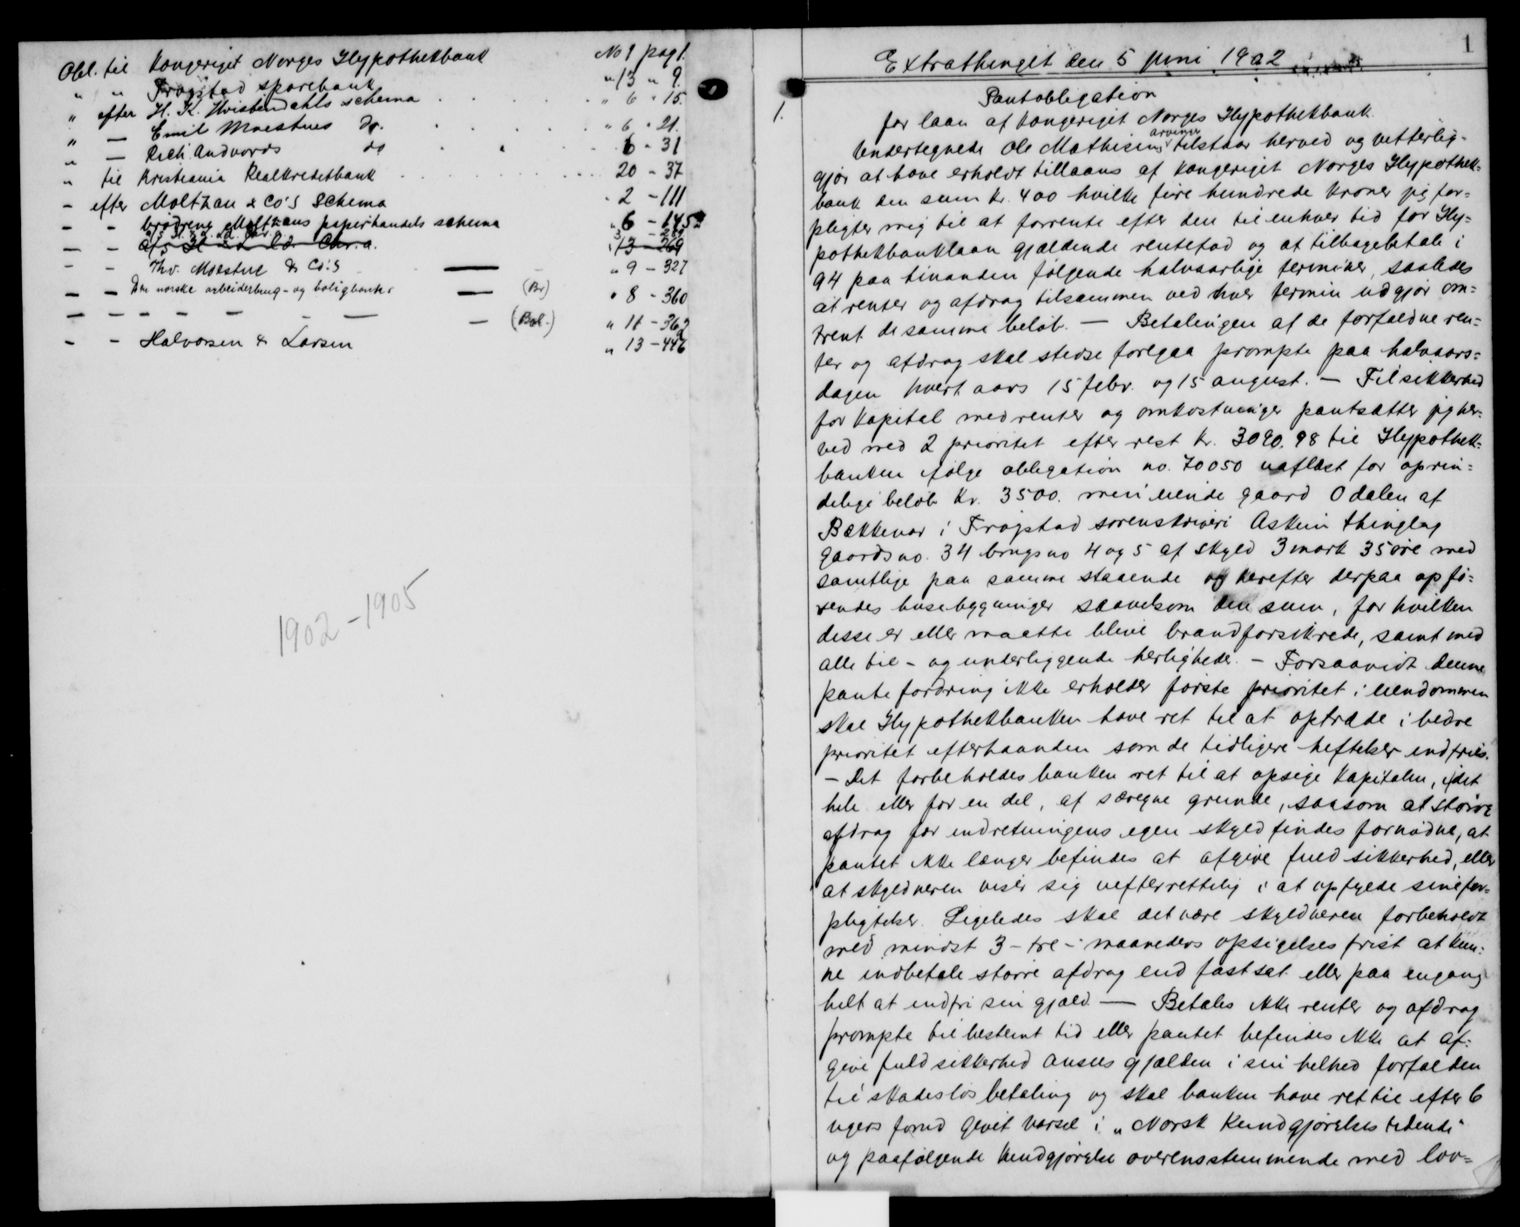 Obl. til Kongeriget Norges Hypothekbank No 1 pag 1.
" " Frogstad sparebank " 13 " 9.
" efter H. K. Hvistendahls schema " 6 " 15.
" — Emil Moestues do. " 6 " 21.
" — Rich. Andvords do 6 - 31
" til Kristiania Realkreditbank 20 - 37
- efter Moltzau & Co's Schema - 2 - 111
- - brødrene Moltzaus papirhandels schema " 6 - 145
13 269
- - Thv. Moestue & Co's — " 9 - 327
- - Den norske arbeiderbrug- og boligbanks — (Br) " 8 - 360
- - - - - - - (Bol.) " 11 - 362
- - Halvorsen & Larsen " 13 - 446
1902-1905
1
Extrathinget den 5 juni 1902
1. Pantobligation
for laan af Kongeriget Norges Hypothekbank.
Undertegnede Ole Mathisens arvinger tilstaar herved og vitterlig-
gjør at have erholdt tillaans af Kongeriget Norges Hypothek-
bank den sum kr. 400 hvilke fire hundrede kroner jeg for-
pligter mig til at forrente efter den til enhver tid for Hy-
pothekbanklaan gjældende rentefod og at tilbagebetale i
94 paa hinanden følgende halvaarlige terminer, saaledes
at renter og afdrag tilsammen ved hver termin udgjør om-
trent de samme beløb. — Betalingen af de forfaldne ren-
ter og afdrag skal stedse foregaa prompte paa halvaars-
dagen hvert aars 15 febr. og 15 august. — Til sikkerhed
for kapital med renter og omkostninger pantsætter jeg her-
ved med 2 prioritet efter rest kr. 3090.98 til Hypothek-
banken ifølge obligation no. 70050 uaflæst for oprin-
delige beløb kr. 3500. min eiende gaard Odalen af
Bækkevar i Frogstad sorenskriveri Askim thinglag
gaardsno. 34 brugsno 4 og 5 af skyld 3 mark 35 øre med
samtlige paa samme staaende og herefter derpaa opfø-
rendes husebygninger saavelsom den sum, for hvilken
disse er eller maatte blive brandforsikrede, samt med
alle til- og underliggende herligheder. — Forsaavidt denne
pantefordring ikke erholder første prioritet i eiendommen
skal Hypothekbanken have ret til at optræde i bedre
prioritet efterhaanden som de tidligere heftelser indfries.
— Det forbeholdes banken ret til at opsige kapitalen, i det
hele eller for en del, af særegne grunde, saasom at større
afdrag for indretningens egen skyld findes fornødne, at
pantet ikke længer befindes at afgive fuld sikkerhed, eller
at skyldneren viser sig uefterrettelig i at opfylde sine for-
pligtelser. Ligeledes skal det være skyldneren forbeholdt
med mindst 3 - tre - maaneders opsigelses frist at kun-
ne indbetale større afdrag end fastsat eller paa engang
helt at indfri sin gjæld. — Betales ikke renter og afdrag
prompte til bestemt tid eller pantet befindes ikke at af-
give fuld sikkerhed ansees gjælden i sin helhed forfalden
til skadesløs betaling og skal banken have ret til efter 6
ugers forud givet varsel i "Norsk Kundgjørelses tidende"
og paafølgende kundgjørelse overensstemmende med lov-